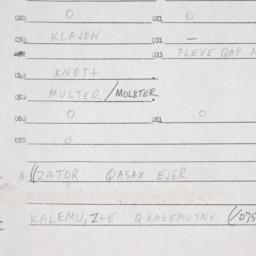 020 0 021 0
030 KLAJEN 031 —
033 PLEVE QAP
040 KNOT+
050 MULTER / MOLBTER
060 0 061 0
070 0
A ((ZATOR QASAX EJER
KALEMU, Z+E QKALEMUTNE (/075